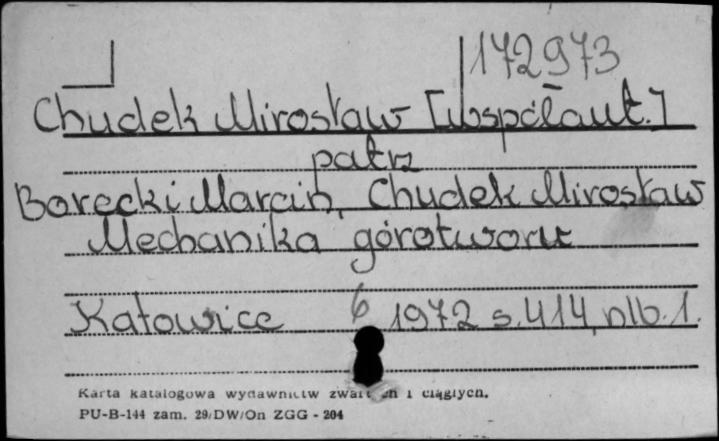 172973
Chudek Mirosław [współaut.]
patrz
Borecki Marcin, Chudek Mirosław
Mechanika górotworu
Katowice 6 1972 s. 414, nlb. 1.
Karta katalogowa wydawnictw zwartych i ciągłych.
PU-B-144 zam. 29/DW/On ZGG - 204